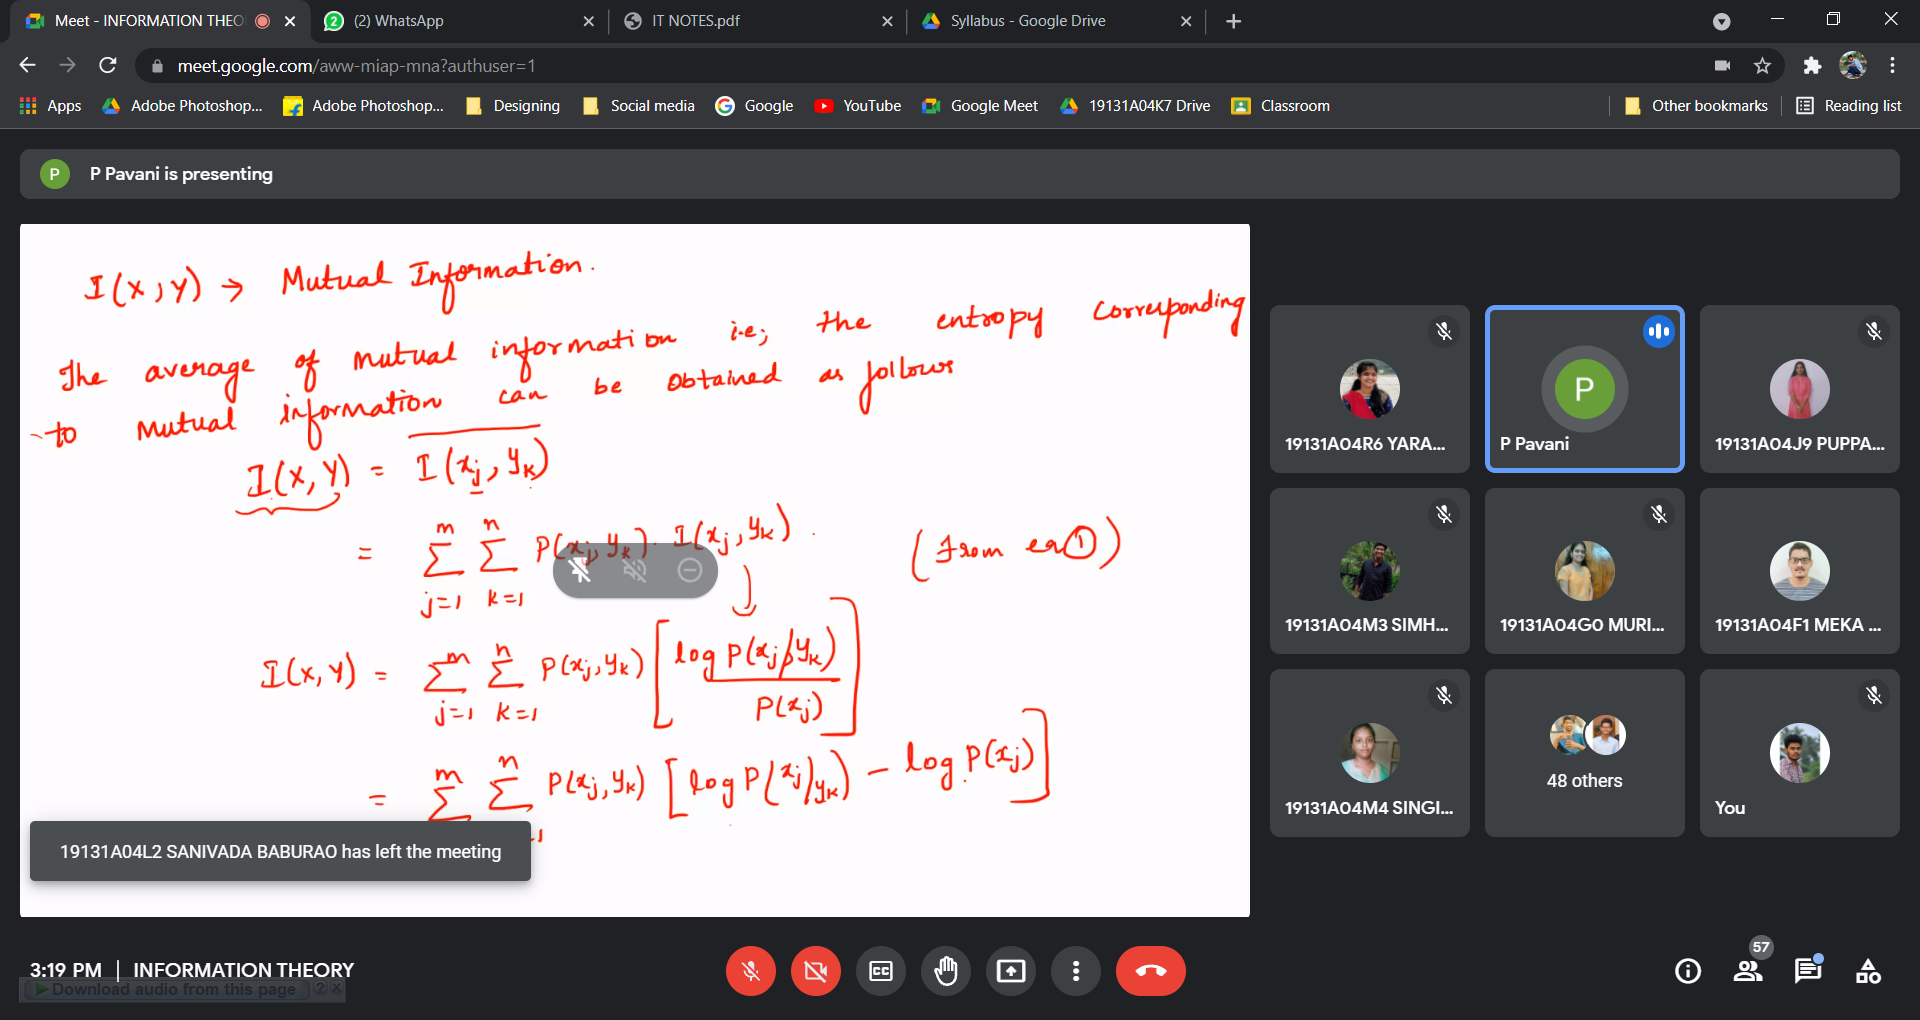 Meet - INFORMATION THEO
(2) WhatsApp
IT NOTES.pdf
Syllabus - Google Drive
meet.google.com/aww-miap-mna?authuser=1
Apps
Adobe Photoshop...
Adobe Photoshop...
Designing
Social media
Google
YouTube
Google Meet
19131A04K7 Drive
Classroom
Other bookmarks
Reading list
P
P Pavani is presenting
I(X;Y) → Mutual Information.
The average of mutual information i.e; the entropy corresponding
to mutual information can be obtained as follows
I(X,Y) = I(xj,yk)
= m∑j=1 n∑k=1 P(xj,yk). I(xj,yk). (from eq①)
I(X,Y) = m∑j=1 n∑k=1 P(xj,yk) [log P(xj/yk) / P(xj)]
= m∑ n∑ P(xj,yk) [log P(xj/yk) - log P(xj)]
19131A04L2 SANIVADA BABURAO has left the meeting
19131A04R6 YARA...
P
P Pavani
19131A04J9 PUPPA...
19131A04M3 SIMH...
19131A04G0 MURI...
19131A04F1 MEKA ...
19131A04M4 SINGI...
48 others
You
3:19 PM | INFORMATION THEORY
Download audio from this page ? X
CC
57